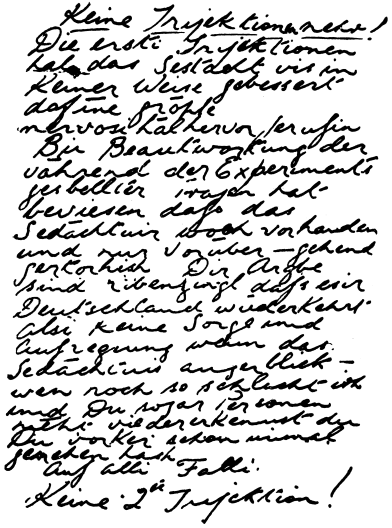 Keine Injektionen mehr!
Die erste Injektionen
hat das Gedächtnis in
Keiner Weise gebessert
dafine größe
nervosität hervorgerufen
Bei Beantwortung der
während der Experiments
gestellter Fragen hat
bewiesen dass das
Gedächtnis noch vorhanden
und nur vorüber-gehend
gestört ist Die Ärzte
sind überzeugt dass es in
Deutschland wiederkehrt
Also keine Sorge und
Aufregung wenn das
Gedächtnis augenblick-
wen noch so schlecht ist
und Du sogar Personen
nicht wiedererkennst die
Du vorher schon einmal
gesehen hast
Auf alle Fälle.
Keine 2te Injektion!